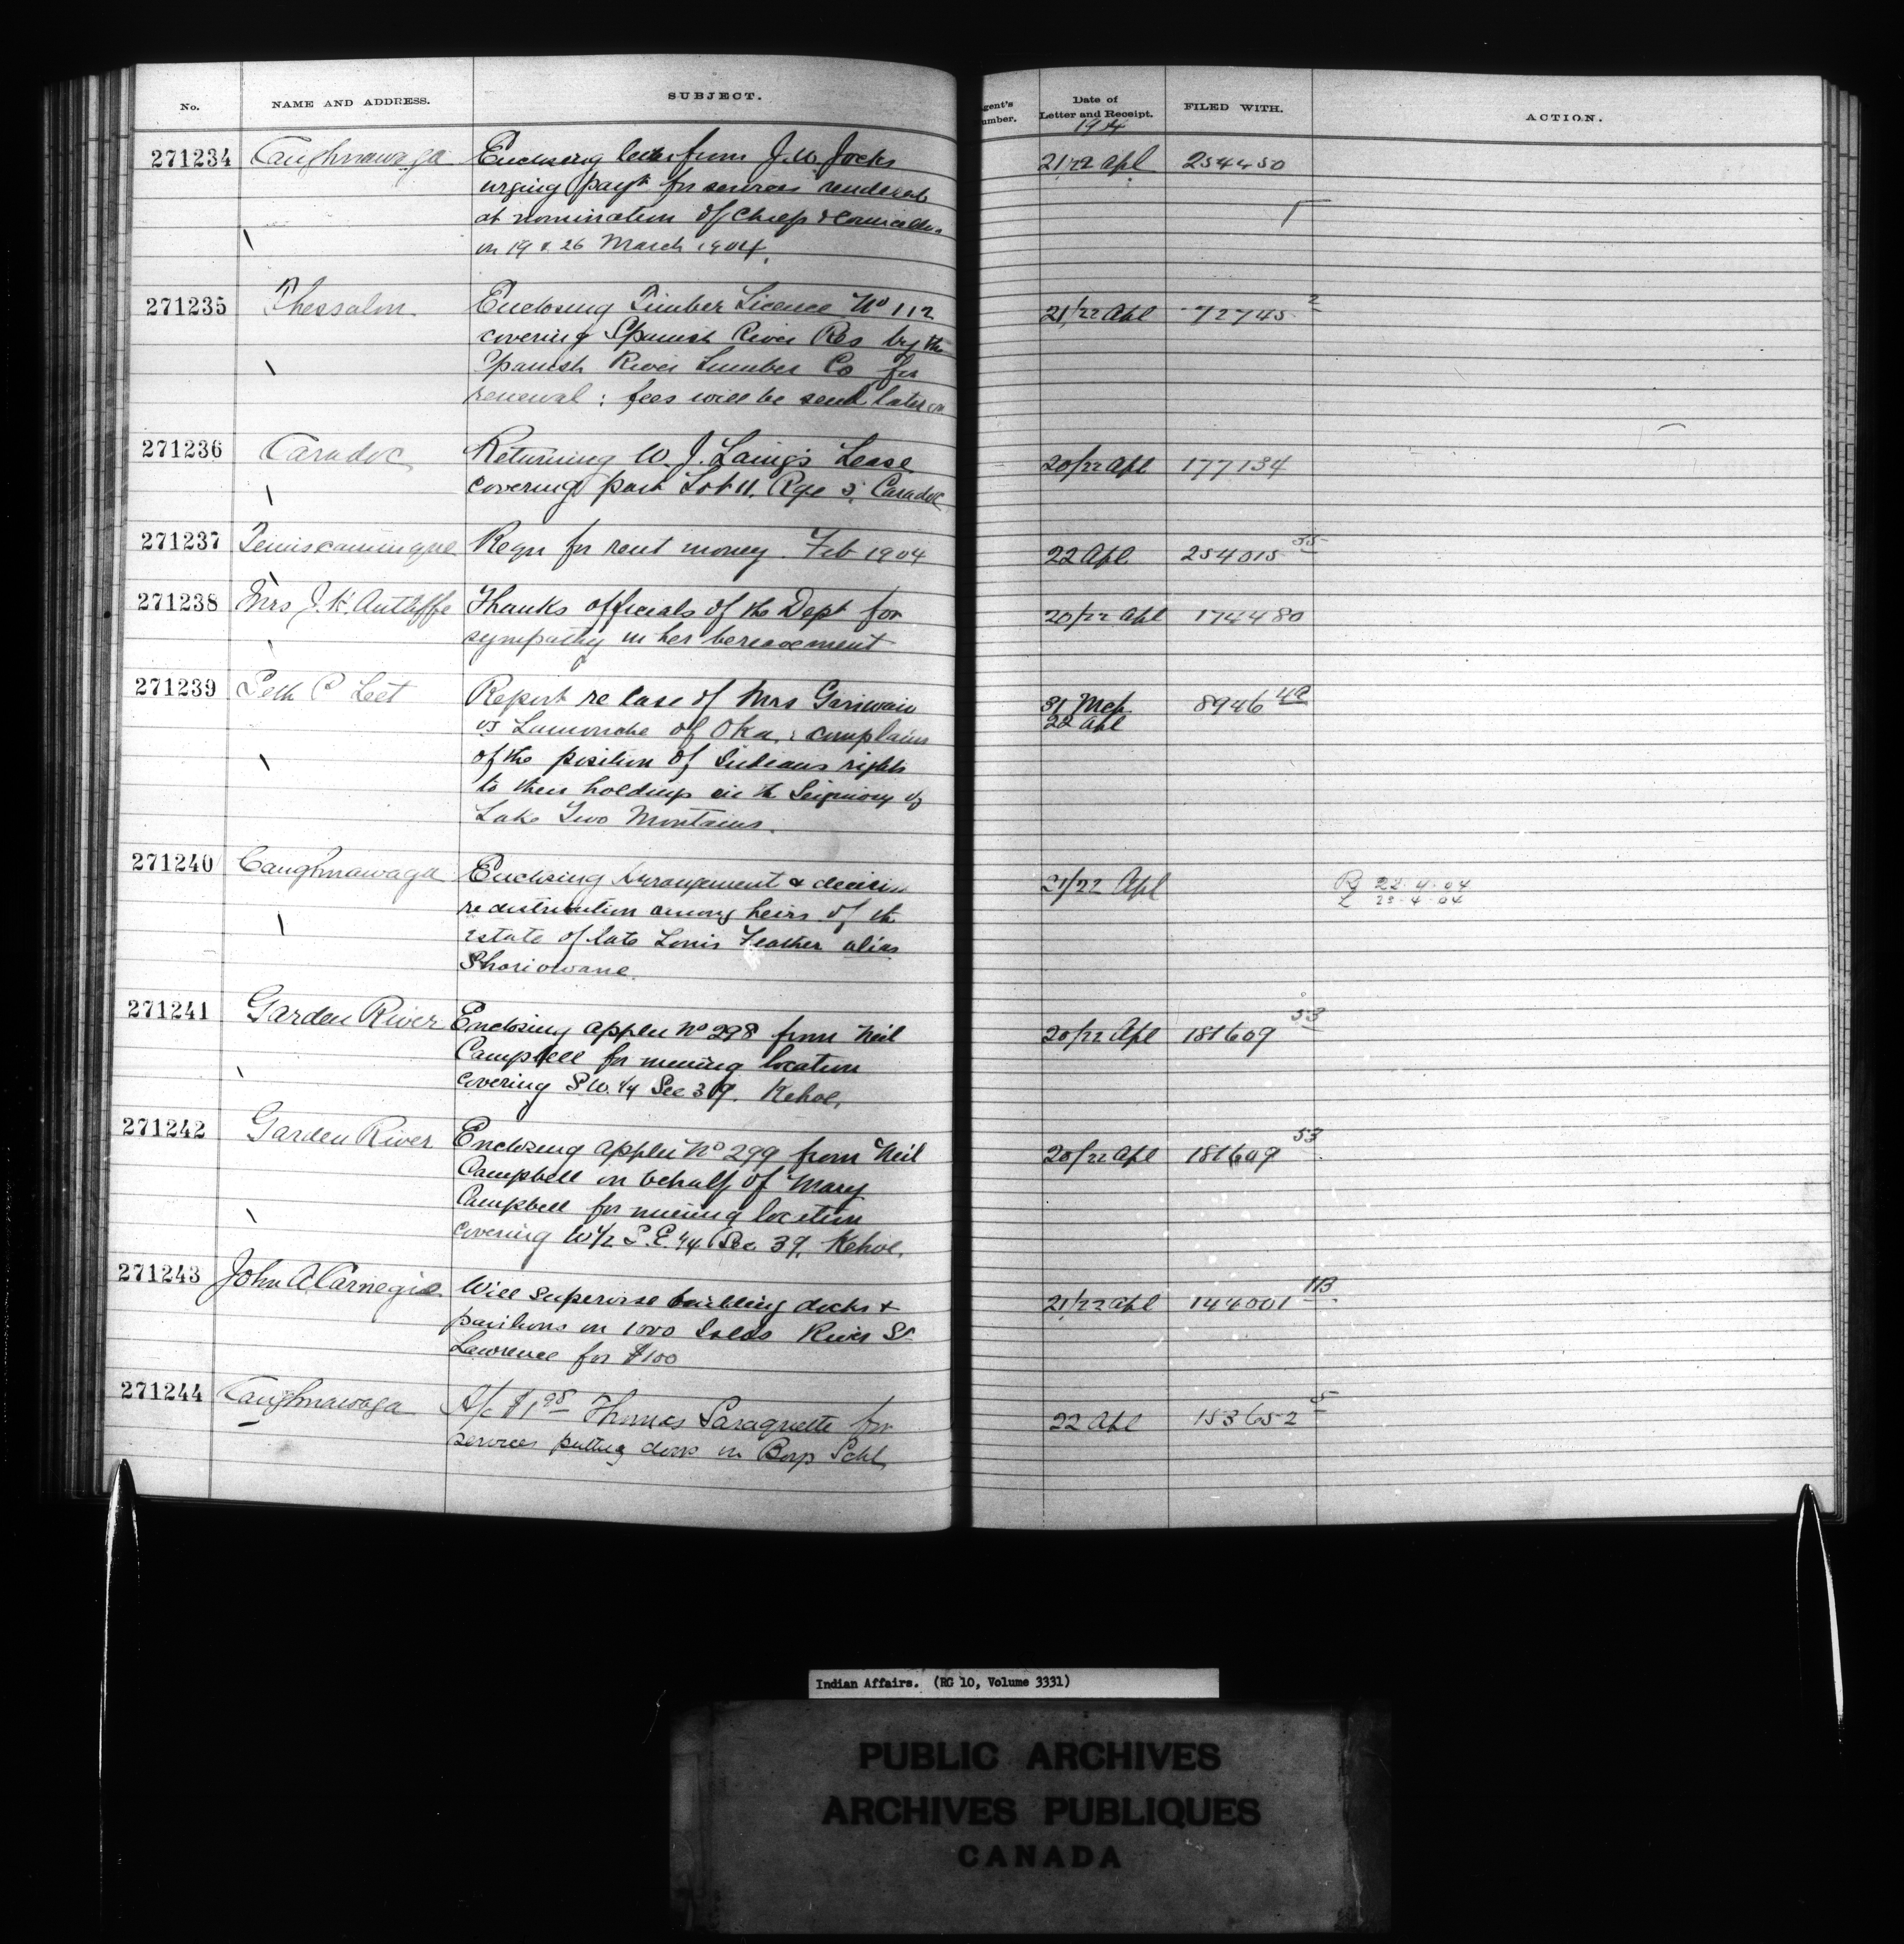 No. NAME AND ADDRESS. SUBJECT. Agent's Number. Date of Letter and Receipt. FILED WITH. ACTION.
1904
271234 Caughnawaga Enclosing letter from J. W. Jocks 21/22 Apl 254450
urging payt for services rendered
at nomination of Chiefs & Councillors
on 19 & 26 March 1904.
271235 Thessalon Enclosing Timber Licence No 112 21/22 Apl 72745 2
covering Spanish River Res by the
Spanish River Lumber Co for
renewal : fees will be send later on
271236 Caradoc Returning W. J. Laing's Lease 20/22 Apl 177134
covering part Lot 11, Rge 5, Caradoc
271237 Temiscamingue Reqn for rent money. Feb 1904 22 Apl 254015 55
271238 Mrs J. Antliffe Thanks officials of the Dept for 20/22 Apl 174480
sympathy in her bereavement
271239 Seth P Leet Report re case of Mrs Gariwaiu 31 Mch 8946 4C
vs Lamouche of Oka, : complains 22 Apl
of the position of Indians rights
to their holdings in the Seigniory of
Lake Two Mountains.
271240 Caughnawaga Enclosing Arrangement & decision 21/22 Apl Rg 22-4-04
re distribution among heirs of the L 23-4-04
Estate of late Louis Feather alias
Shoriowane.
271241 Garden River Enclosing appln No 298 from Neil 20/22 Apl 181609 53
Campbell for mining location
covering S.W. 1/4 Sec 39. Kehoe.
271242 Garden River Enclosing appln No 299 from Neil 20/22 Apl 181609 53
Campbell on behalf of Mary
Campbell for mining location
covering W1/2 S.E. 1/4 Sec. 39. Kehoe.
271243 John A Carnegie Will supervise building docks & 21/22 Apl 144001 113
pavilions on 1000 Islds River St
Lawrence for $100
271244 Caughnawaga A/c $1 98 Thomas Saraquette for 22 Apl 153652 5
services putting door in Boys Schl
Indian Affairs. (RG 10, Volume 3331)
PUBLIC ARCHIVES
ARCHIVES PUBLIQUES
CANADA